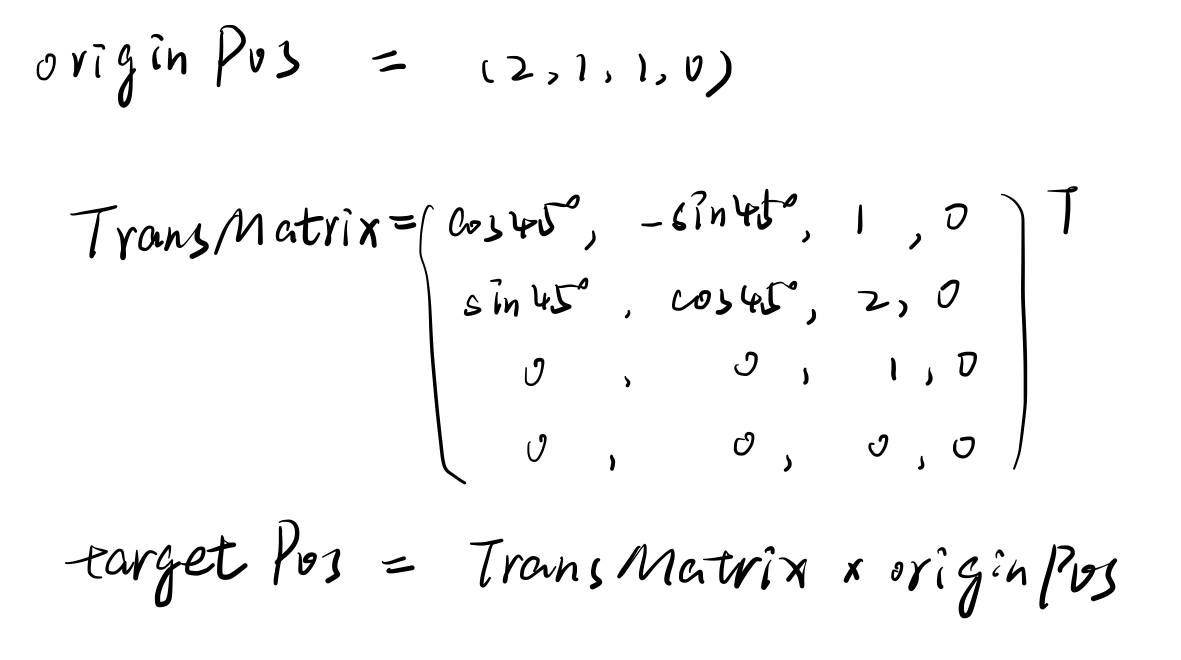 originPos = (2, 1, 1, 0)
TransMatrix = ( cos45°, -sin45°, 1, 0 ) T
sin45°, cos45°, 2, 0
0, 0, 1, 0
0, 0, 0, 0
targetPos = TransMatrix × originPos